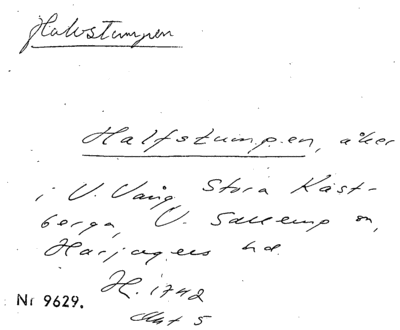 Halvstumpen
Halfstumpen, åker
i V. Vång, Stora Käst-
berga, V. Sallerup sn,
Harjagers hd.
H. 1742
Akt 5
Nr 9629.